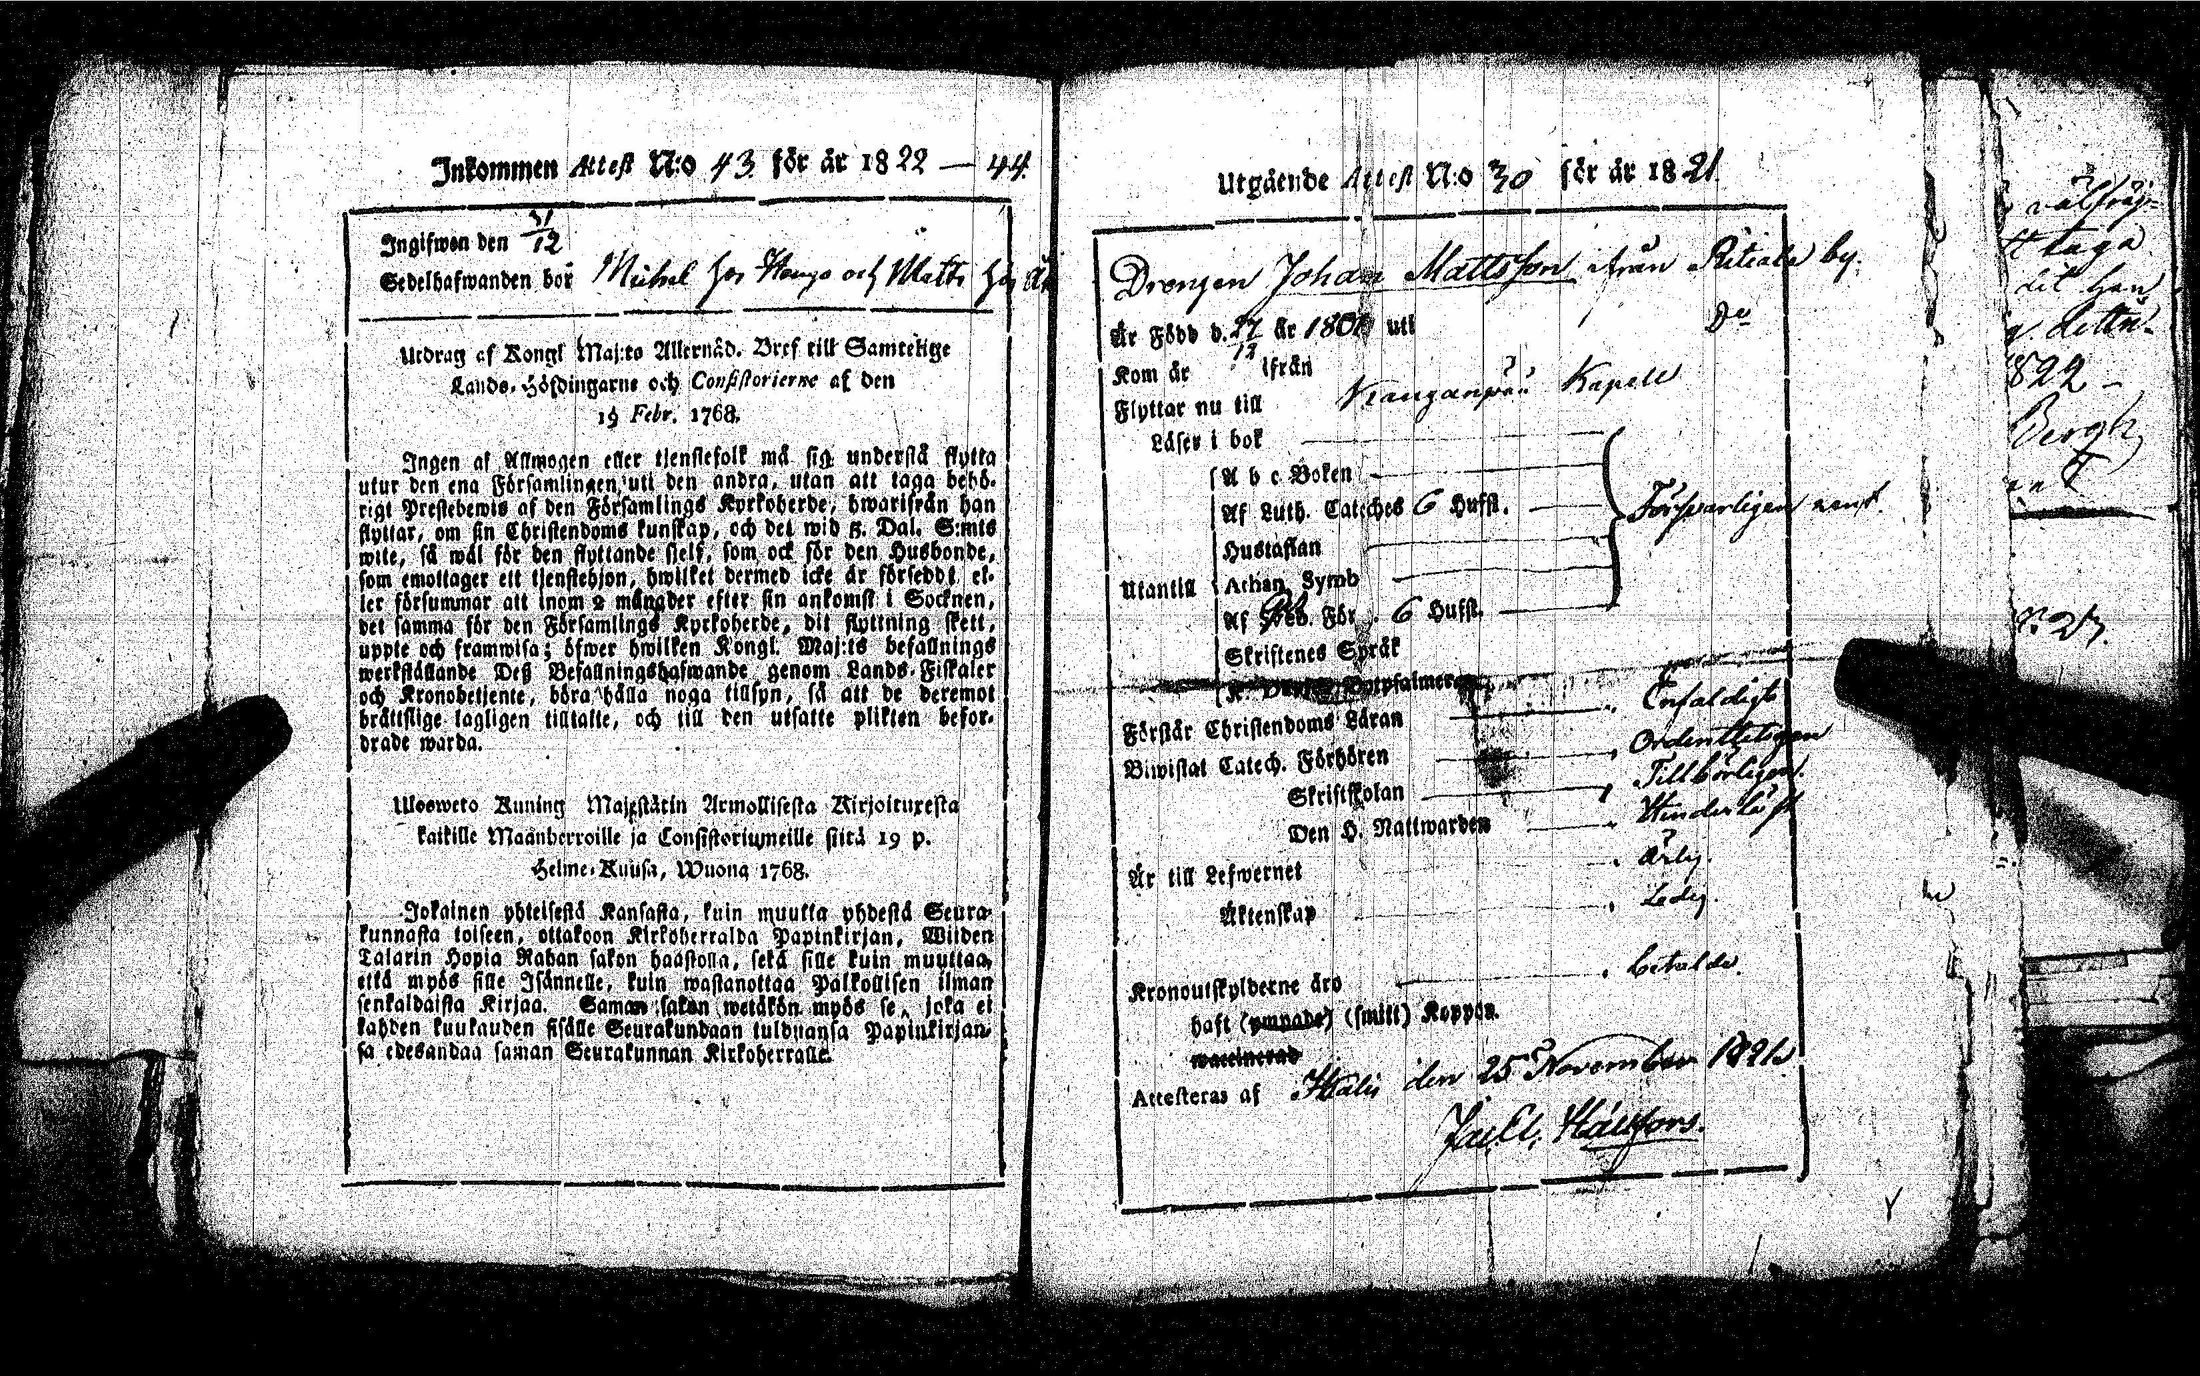 Inkommen Attest N:o 43 för år 1822 — 44.
Ingifwen den 21/12
Sedelhafwanden bor Michel hos Knuga och Matts hos
Utdrag af Kongl Maj:ts Allernåd. Bref till Samtelige
Lands-Höfdingarne och Consistorierne af den
19 Febr. 1768.
Ingen af Allmogen eller tjenstefolk må sig understå flytta
utur den ena Församlingen uti den andra, utan att taga behö-
rigt Prestebewis af den Församlings Kyrkoherde, hwarifrån han
flyttar, om sin Christendoms kunskap, och det wid 5. Dal. S:mts
wite, så wäl för den flyttande sielf, som ock för den Husbonde,
som emottager ett tjenstehjon, hwilket dermed icke är försedt, el-
ler försummar att inom 2 månader efter sin ankomst i Socknen,
det samma för den Församlings Kyrkoherde, dit flyttning skett,
uppte och framwisa; öfwer hwilken Kongl. Maj:ts befallnings
werkställande Deß Befallningshafwande genom Lands-Fiskaler
och Kronobetjente, böra hålla noga tillsyn, så att de deremot
bråttslige lagligen tilltalte, och till den utsatte plikten befor-
drade warda.
Ulosweto Kuning Majestätin Armollisesta Kirjoituxesta
kaikille Maanherroille ja Consistoriumeille siitä 19 p.
Helme-Kuusa, Wuona 1768.
Jokainen yhteisestä Kansasta, kuin muutta yhdestä Seura-
kunnasta toiseen, ottakoon Kirkoherralda Papinkirjan, Wiiden
Talarin Hopia Rahan sakon haastolla, sekä sille kuin muuttaa,
että myös sille Isännelle, kuin wastanottaa Palkollisen ilman
senkaldaista Kirjaa. Saman sakon wetäkön myös se, joka ei
kahden kuukauden sisälle Seurakundaan tulduansa Papinkirjan-
sa edesandaa saman Seurakunnan Kirkoherralle.
Utgående Attest N:o 30 för år 1821.
Drengen Johan Mattsson ifrån Ritiala by.
Är Född d. 27/12 år 1801 uti Do
Kom år ifrån
Flyttar nu till Kauganpää Kapell
Läser i bok
A b c Boken
Af Luth. Cateches 6 Hufst.
Försvarligen
Hustaflan
Utantill Athan. Symb
Af För. 6 Hufst.
Skriftenes Språk
Botpsalmerne
Förstår Christendoms Läran Enfaldigt
Biwistat Catech. Förhören Ordentteligen
Skriftskolan Tillbörligen.
Den H. Nattwarden
Är till Lefwernet Ärlig.
Äktenskap Ledig.
Kronoutskylderne äro betalde.
haft (ympade) (smitt) Koppor.
waccinerad
Attesteras af Ikalis den 25 November 1821.
Hällfors.
taga
dit han
822 —
Bergh